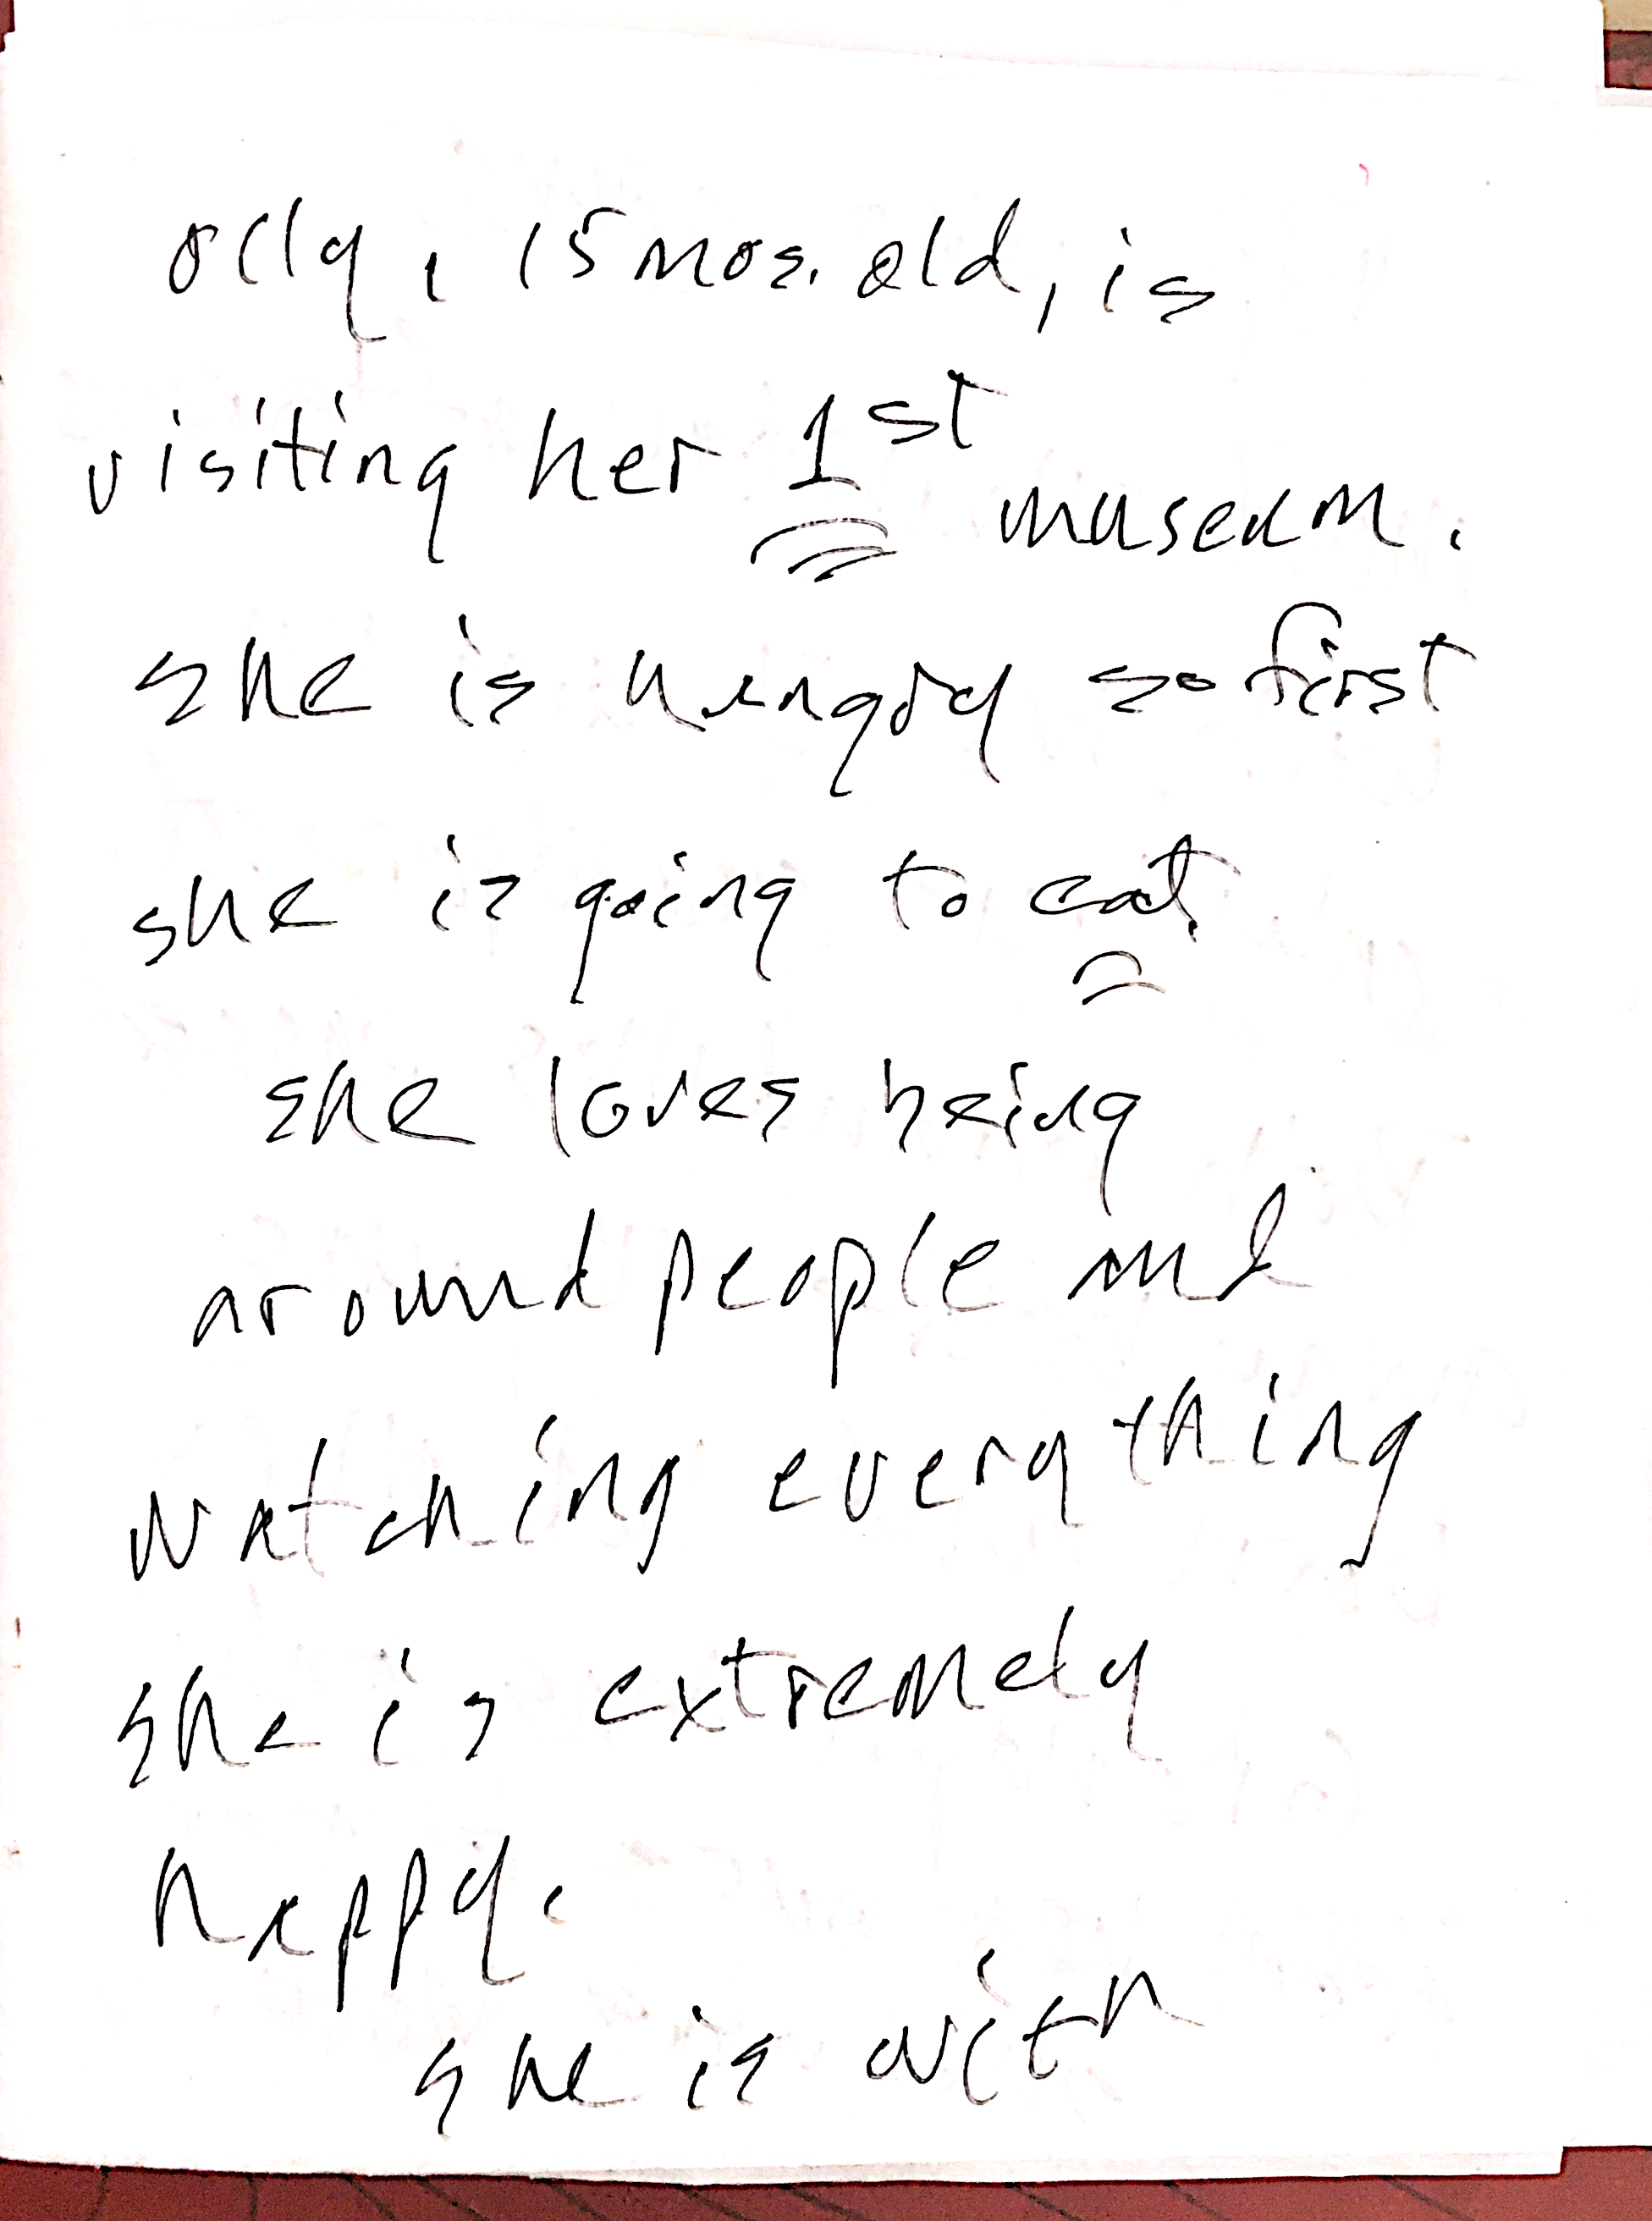 Olly, 15 mos. old, is
visiting her 1st museum.
She is hungry so first
she is going to eat.
She loves being
around people and
watching everything
She is extremely
happy.
She is with